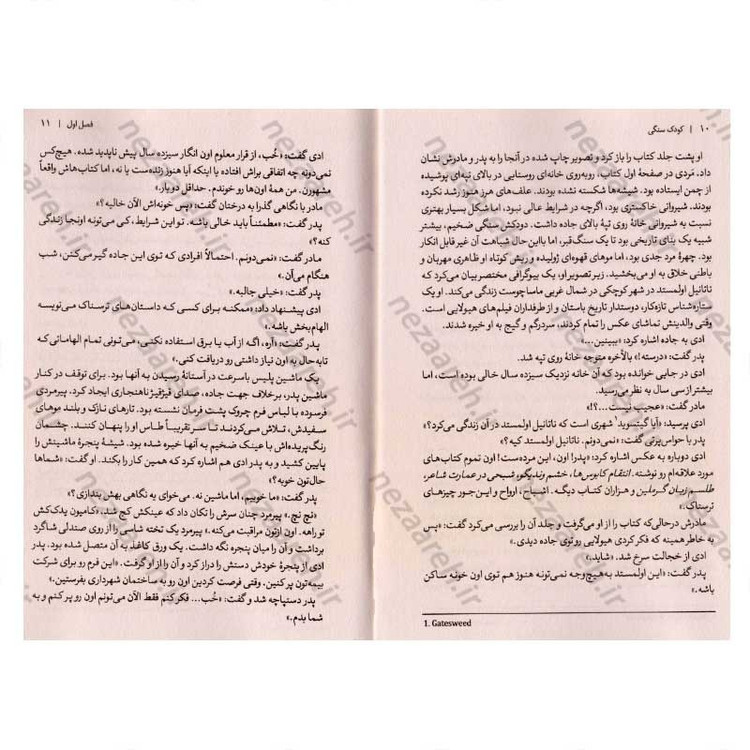 ۱۰ | کودک سنگی
او پشت جلد کتاب را باز کرد و تصویر چاپ شده در آنجا را به پدر و مادرش نشان
داد. مَردی در صفحهٔ اول کتاب، روبه‌روی خانه‌ای روستایی در بالای تپه‌ای پوشیده
از چمن ایستاده بود. شیشه‌ها شکسته نشده بودند. علف‌های هرز هنوز رشد نکرده
بودند. شیروانی خاکستری بود، اگرچه در شرایط عالی نبود، اما شکل بسیار بهتری
نسبت به شیروانی خانهٔ روی تپهٔ بالای جاده داشت. دودکش سنگی ضخیم، بیشتر
شبیه یک بنای تاریخی بود تا یک سنگ‌قبر، اما بااین‌حال شباهت آن غیر قابل انکار
بود. چهرهٔ مرد جدی بود، اما موهای قهوه‌ای ژولیده و ریش کوتاه او ظاهری مهربان و
باطنی خلاق به او می‌بخشید. زیر تصویر او، یک بیوگرافی مختصر بیان می‌کرد که
ناتانیل اولمستد در شهر کوچکی در شمال غربی ماساچوست زندگی می‌کند. او یک
ستاره‌شناس تازه‌کار، دوستدار تاریخ باستان و از طرفداران فیلم‌های هیولایی است.
وقتی والدینش تماشای عکس را تمام کردند، سردرگم و گیج به او خیره شدند.
ادی به جاده اشاره کرد: «ببینین...»
پدر گفت: «درسته!» بالأخره متوجه خانهٔ روی تپه شد.
ادی در جایی خوانده بود که آن خانه نزدیک سیزده سال خالی بوده است، اما
بیشتر از سی سال به نظر می‌رسید.
مادر گفت: «عجیب نیست...؟!»
ادی پرسید: «آیا گیتسوید¹ شهری است که ناتانیل اولمستد در آن زندگی می‌کرد؟»
پدر با حواس‌پرتی گفت: «نمی‌دونم. ناتانیل اولمستد کیه؟»
ادی دوباره به عکس اشاره کرد: «پدر! اون، این مرده‌ست! اون تموم کتاب‌های
مورد علاقه‌ام رو نوشته. انتقام کابوس‌ها، خشم زندیگر، شبحی در عمارت شاعر،
طلسم زبان گرملین و هزاران کتاب دیگه. اشباح، ارواح و این‌جور چیزهای
ترسناک.»
مادرش درحالی‌که کتاب را از او می‌گرفت و جلد آن را بررسی می‌کرد گفت: «پس
به خاطر همینه که فکر کردی هیولایی رو توی جاده دیدی.»
ادی از خجالت سرخ شد. «شاید.»
پدر گفت: «این اولمستد به‌هیچ‌وجه نمی‌تونه هنوز هم توی اون خونه ساکن
باشه.»
1. Gatesweed
فصل اول | ۱۱
ادی گفت: «خُب، از قرار معلوم اون انگار سیزده سال پیش ناپدید شده. هیچ‌کس
نمی‌دونه چه اتفاقی براش افتاده یا اینکه آیا هنوز زنده‌ست یا نه، اما کتاب‌هاش واقعاً
مشهورن. من همهٔ اون‌ها رو خوندم. حداقل دو بار.»
مادر با نگاهی گذرا به درختان گفت: «پس خونه‌اش الآن خالیه؟»
پدر گفت: «مطمئناً باید خالی باشه. تو این شرایط، کی می‌تونه اونجا زندگی
کنه؟»
مادر گفت: «نمی‌دونم. احتمالاً افرادی که توی این جاده گیر می‌کنن، شب
هنگام می‌آن.»
پدر گفت: «خیلی جالبه.»
ادی پیشنهاد داد: «ممکنه برای کسی که داستان‌های ترسناک می‌نویسه
الهام‌بخش باشه.»
پدر گفت: «آره، اگه از آب یا برق استفاده نکنی، می‌تونی تمام الهاماتی که
تابه‌حال به اون نیاز داشتی رو دریافت کنی.»
یک ماشین پلیس باسرعت در آستانهٔ رسیدن به آنها بود. برای توقف در کنار
ماشین پدر، برخلاف جهت جاده، صدای قیژقیژ ناهنجاری ایجاد کرد. پیرمردی
فرسوده با لباس فرم چروک پشت فرمان نشسته بود. تارهای نازک و بلند موهای
سفیدش، تلاش می‌کردند تا سر تقریباً طاس او را پنهان کنند. چشمان
رنگ‌پریده‌اش با عینک ضخیم به آنها خیره شده بود. شیشهٔ پنجرهٔ ماشینش را
پایین کشید و به پدر ادی هم اشاره کرد که همین کار را بکند. او گفت: «شماها
حال‌تون خوبه؟»
پدر گفت: «ما خوبیم، اما ماشین نه. می‌خوای یه نگاهی بهش بندازی؟»
«نچ نچ.» پیرمرد چنان سرش را تکان داد که عینکش کج شد. «کامیون یدک‌کش
تو راهه. اون ازتون مراقبت می‌کنه.» پیرمرد یک تخته شاسی را از روی صندلی شاگرد
برداشت و آن را میان پنجره نگه داشت. یک ورق کاغذ به آن متصل شده بود. پدر
ادی از پنجرهٔ خودش دستش را دراز کرد و آن را از او گرفت. «این فرم رو برای شرکت
بیمه‌تون پر کنین. وقتی فرصت کردین اون رو به ساختمان شهرداری بفرستین.»
پدر دستپاچه شد و گفت: «خُب... فکر کنم فقط الآن می‌تونم اون رو پر کنم و به
شما بدم.»
nezaareh.ir